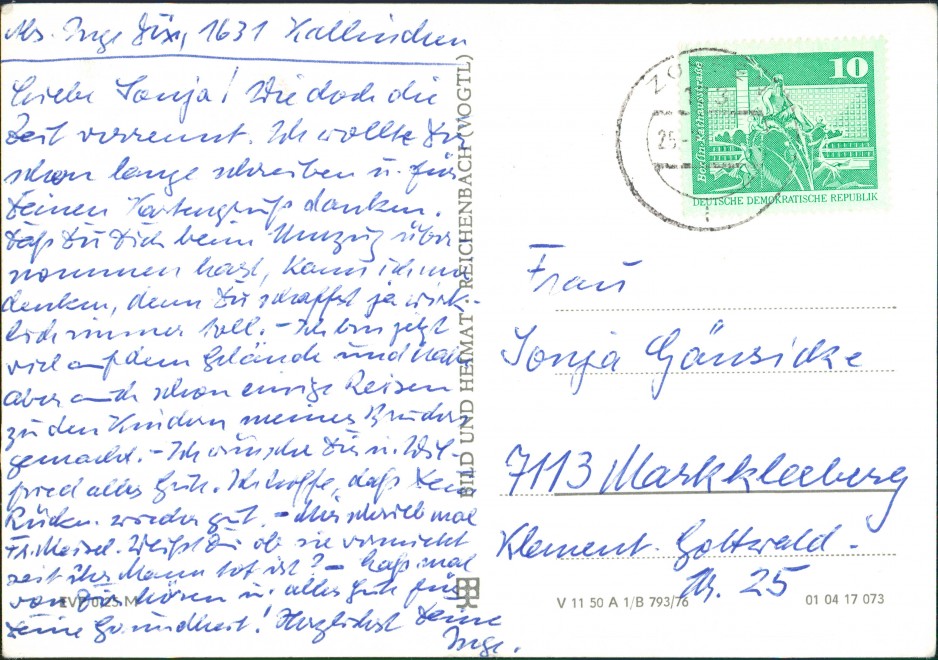 Abs. Inge Dix, 1631 Kallinchen
Liebe Sonja! Wie doch die
Zeit verrennt. Ich wollte Dir
schon lange schreiben u. für
Deinen Kartengruß danken.
Daß Du Dich beim Umzug über
nommen hast, kann ich mir
denken, denn Du schaffst ja wirk-
lich immer toll. – Ich bin jetzt
viel auf dem Gelände und hab
aber auch schon einige Reisen
zu den Kindern meines Bruders
gemacht. – Ich wünsche Dir u. Wil-
fried alles Gute. Ich hoffe, daß Dein
Rücken wieder gut. – Mir schrieb mal
Fr. Meisel. Weißt Du ob sie
seit ihr Mann tot ist? – Laß mal
von Dir hören u. alles Gute für
Deine Gesundheit! Herzlichst Deine
Inge.
BILD UND HEIMAT REICHENBACH (VOGTL)
EVP 0,25 M
10
Berlin, Rathausstraße
DEUTSCHE DEMOKRATISCHE REPUBLIK
25.
Frau
Sonja Gänsicke
7113 Markkleeberg
Klement-Gottwald-
Str. 25
V 11 50 A 1/B 793/76
01 04 17 073